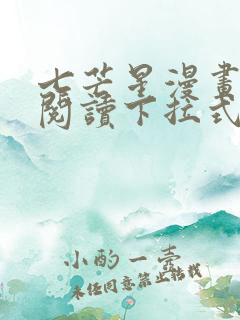 七芒星漫畫
閱讀下拉式
小酌一壺
未经同意禁止转载